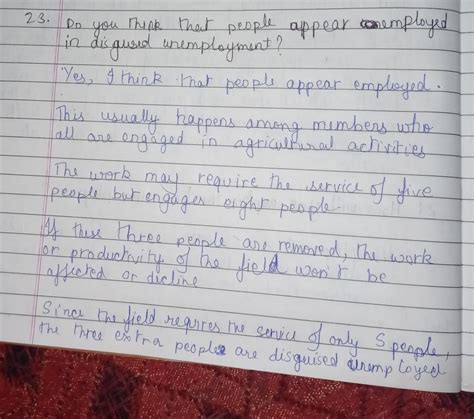 23. Do you think that people appear employed
in disguised unemployment?
Yes, I think that people appear employed.
This usually happens among mimbers who
all are engaged in agricultural activities
The work may require the service of five
people but engages eight people
If these three people are removed, the work
or productivity of the field won't be
affected or dicline
Since the field requires the service of only 5 people,
the three extra people are disguised unemployed